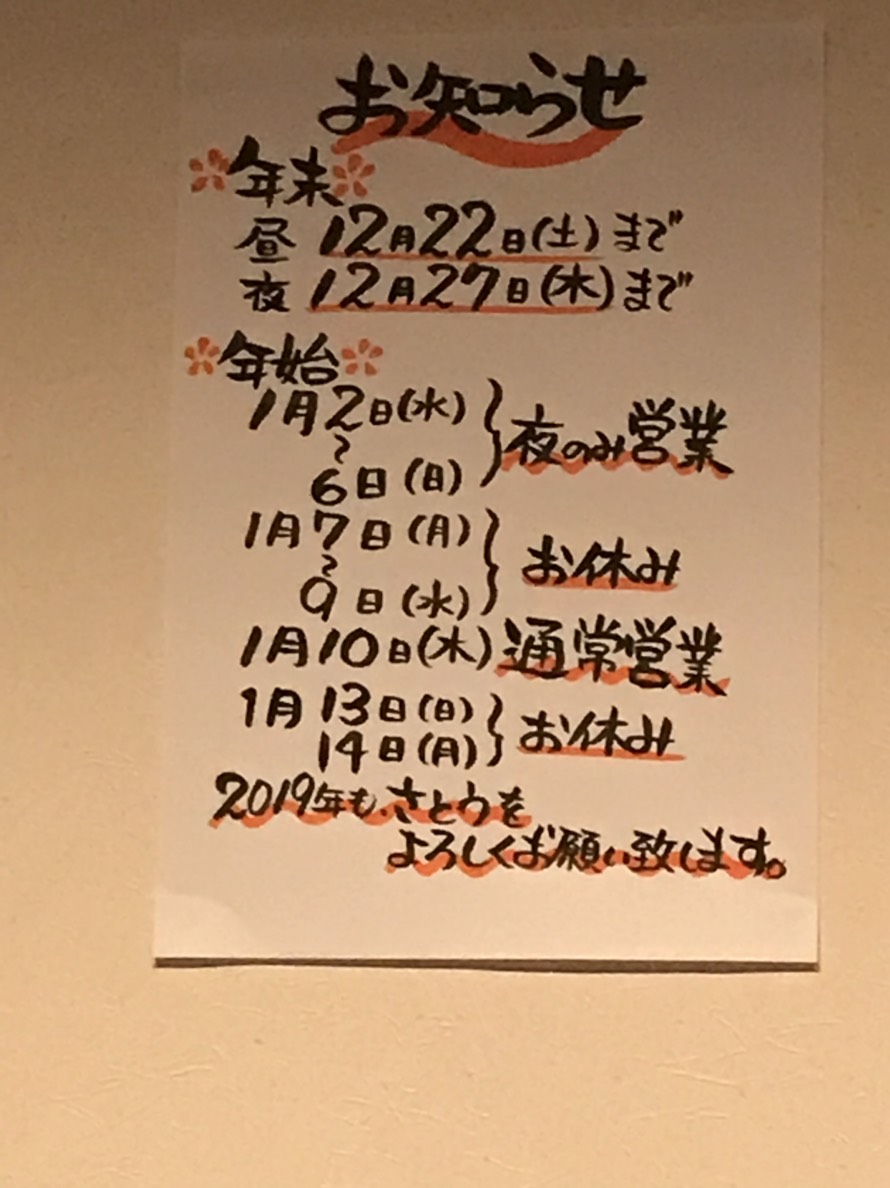 お知らせ
年末
昼 12月22日(土)まで
夜 12月27日(木)まで
年始
1月2日(水)
〜
6日(日)
夜のみ営業
1月7日(月)
〜
9日(水)
お休み
1月10日(木)通常営業
1月13日(日)
14日(月)
お休み
2019年も、さとうを
よろしくお願い致します。